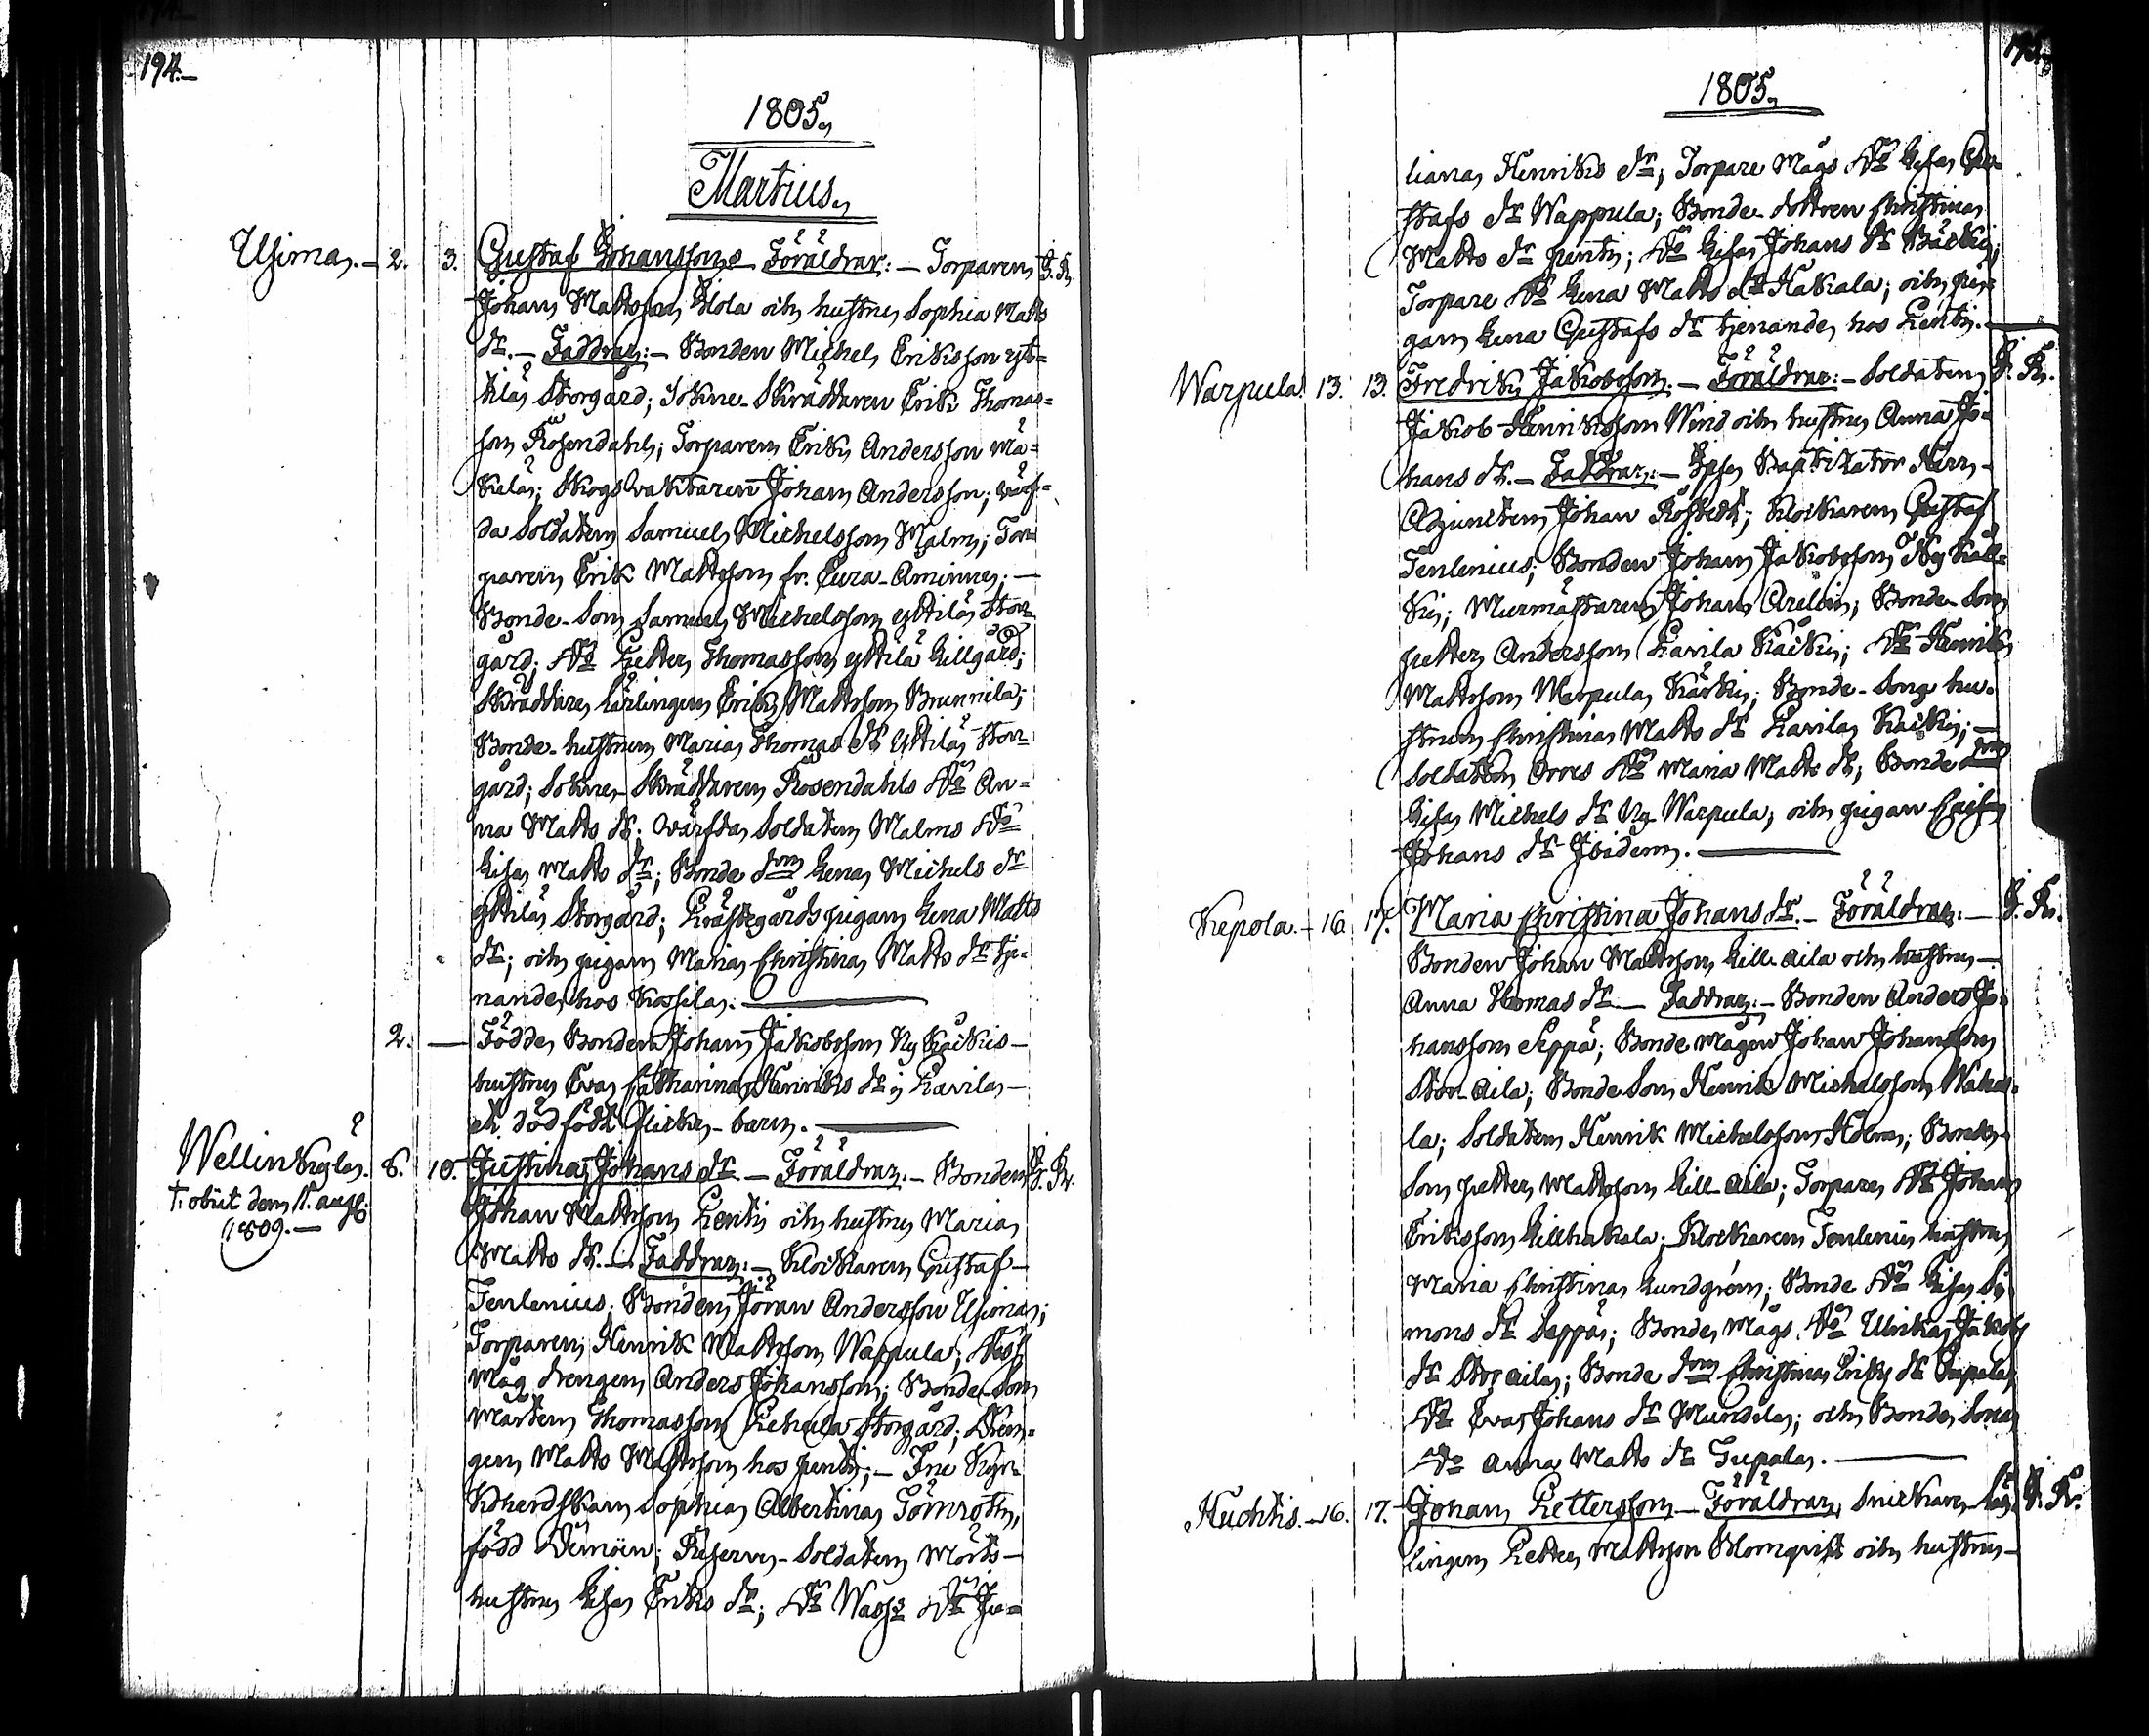 194.
1805.
Martius.
Uhima. 2. 3. Gustaf Johansson. Föräldrar: Torparen J. R.
Johan Mattsson Klola och hustru Sophia Matts
dr. Faddrar: Bonden Michel Eriksson ytt=
tilä Storgård; Sokne-Skräddaren Erik Thomas=
son Rosendahl; Torparen Erik Andersson Mä=
kelä; Skogsvaktaren Johan Andersson; värf=
da Soldaten Samuel Michelsson Malm; Tor=
paren Erik Mattsson fr. Eura-Aminne;
Bonde-Son Samuel Michelsson yttilä Stor=
gård; Do Petter Thomasson yttilä Lillgård;
Skräddare Lärlingen Erik Mattsson Brunnila;
Bonde-hustrun Maria Thomas dr yttilä Stor=
gård; Sokne-Skräddaren Rosendahls Do An=
na Matts dr. värfda Soldaten Malms Do
Lisa Matts dr; Bonde dom Lena Michels dr
yttilä Storgård; Prästegårds pigan Lena Matts
dr; och pigan Maria Christina Matts dr tje=
nande hos
2. Födde Bonden Johan Jakobsson Ny Käikis
hustru Eva Catharina Henriks dr i Kavila
ett dödfödt flicke-barn.
Wellinkylä. 8. 10. Justina Johans dr. Föräldrar. Bonden J. R.
† obiit den 11. aug.
1809.
Johan Mattsson Pentti och hustru Maria
Matts dr. Faddrar: Klockaren Gustaf
Tenlenius. Bonden Jöran Andersson Uhima;
Torparen Henrik Mattsson Wappula;
Måg drengen Anders Johansson; Bonde-Son
Mårten Thomasson Pehula Storgård; Dren=
gen Matts Mattsson hos Pentti; Fru Kyr=
koherdskan Sophia Albertina Törnroth,
född Deinoin; Reserve-Soldaten Mörts
hustru Lisa Eriks dr; Do Do Ju=
1805.
liana Henriks dr; Torpare Mågs Do Lisa Gu=
stafs dr Wappula; Bonde-dottren Christina
Matts dr Pentti; Do Lisa Johans dr Bäcki;
Torpare Do Lena Matts dr Hakala; och pi=
gan Lena Gustafs dr tjenande hos Pentti.
Warpula. 13. 13. Fredrik Jakobsson. Föräldrar: Soldaten J. R.
Jakob Henriksson Wind och hustru Anna Jo=
hans dr. Faddrar: Ipse Baptizator Herr
Adjuncten Johan Rostedt; Klockaren Gustaf
Tenlenius; Bonden Johan Jakobsson Ny Käi=
ki; Murmästaren Johan Arelin; Bonde-Son
Petter Andersson Kavila Käiki; Do Henrik
Mattsson Warpula Kärki; Bonde-Sons hu=
strun Christina Matts dr Kavila Käiki;
Soldaten Orres Do Maria Matts dr; Bonde dom
Lisa Michels dr Ny Warpula; och pigan Caisa
Johans dr Ibidem.
Kepola. 16. 17. Maria Christina Johans dr. Föräldrar: J. R.
Bonden Johan Mattsson Lill-Aila och hustru
Anna Thomas dr. Faddrar: Bonden Anders Jo=
hansson Seppä; Bonde Mågen Johan Johansson
Stor-Aila; Bonde Son Henrik Michelsson Waha=
la; Soldaten Henrik Michelsson Holm; Bonde-
Son Petter Mattsson Lill-Aila; Torpare Do Johan
Eriksson Lillhakala; Klockaren Tenlenii hustru
Maria Christina Lundgren; Bonde Do Lisa Si=
mons dr Seppä; Bonde Mågs Do Ulrika Jakobs
dr Stor Aila; Bonde dom Christina Eriks dr Tupala
Do Eva Johans dr Mundila; och Bonde Sona
Do Anna Matts dr Tupala.
Huchtis. 16. 17. Johan Pettersson. Föräldrar, Snickare-Lär= J. R.
lingen Petter Mattsson Blomqvist och hustru